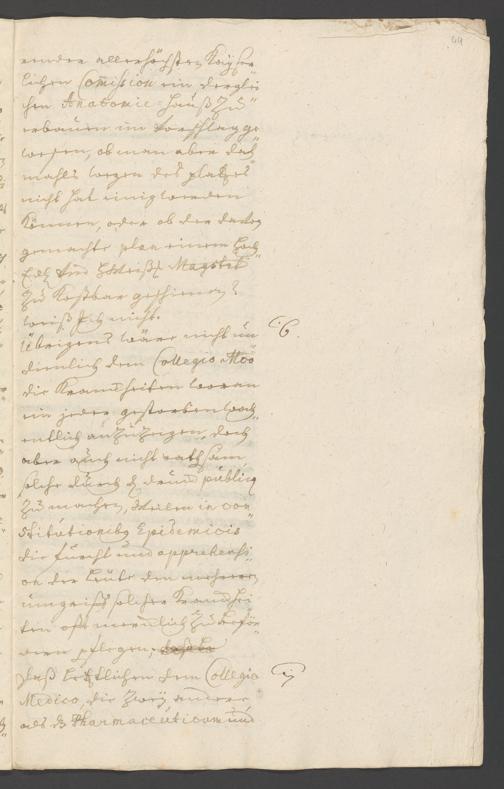 64
eindre allerhöchsten Kayser
lichen Comission ein derglei
chen Anatomie-Hauß zu
erbauen im Vorschlag ge
wesen, ob man aber da
mahls wegen des platzes
nicht hat einig werden
können, oder ob der davon
gemachte plan einem Hoch
Edl und Magstrt
zu Kostbar geschienen
weiß Ich nicht.
6.
Übrigens wäre nicht un
dienlich dem Collegio Med
die Kranckheiten woran
ein jeder gestorben woch
entlich anzuzeigen, doch
aber auch nicht rathsam
solche durch d druck public
zu machen, in con
stitutionibus Epidemicis
die furcht und apprehensi
on der leute den mehreren
solcher Kranckhei
ten oft mercklich zu beför
dern pflegen,
7
Daß letztlichen dem Collegio
Medico, die zwey andere
als d. Pharmaceuticum und